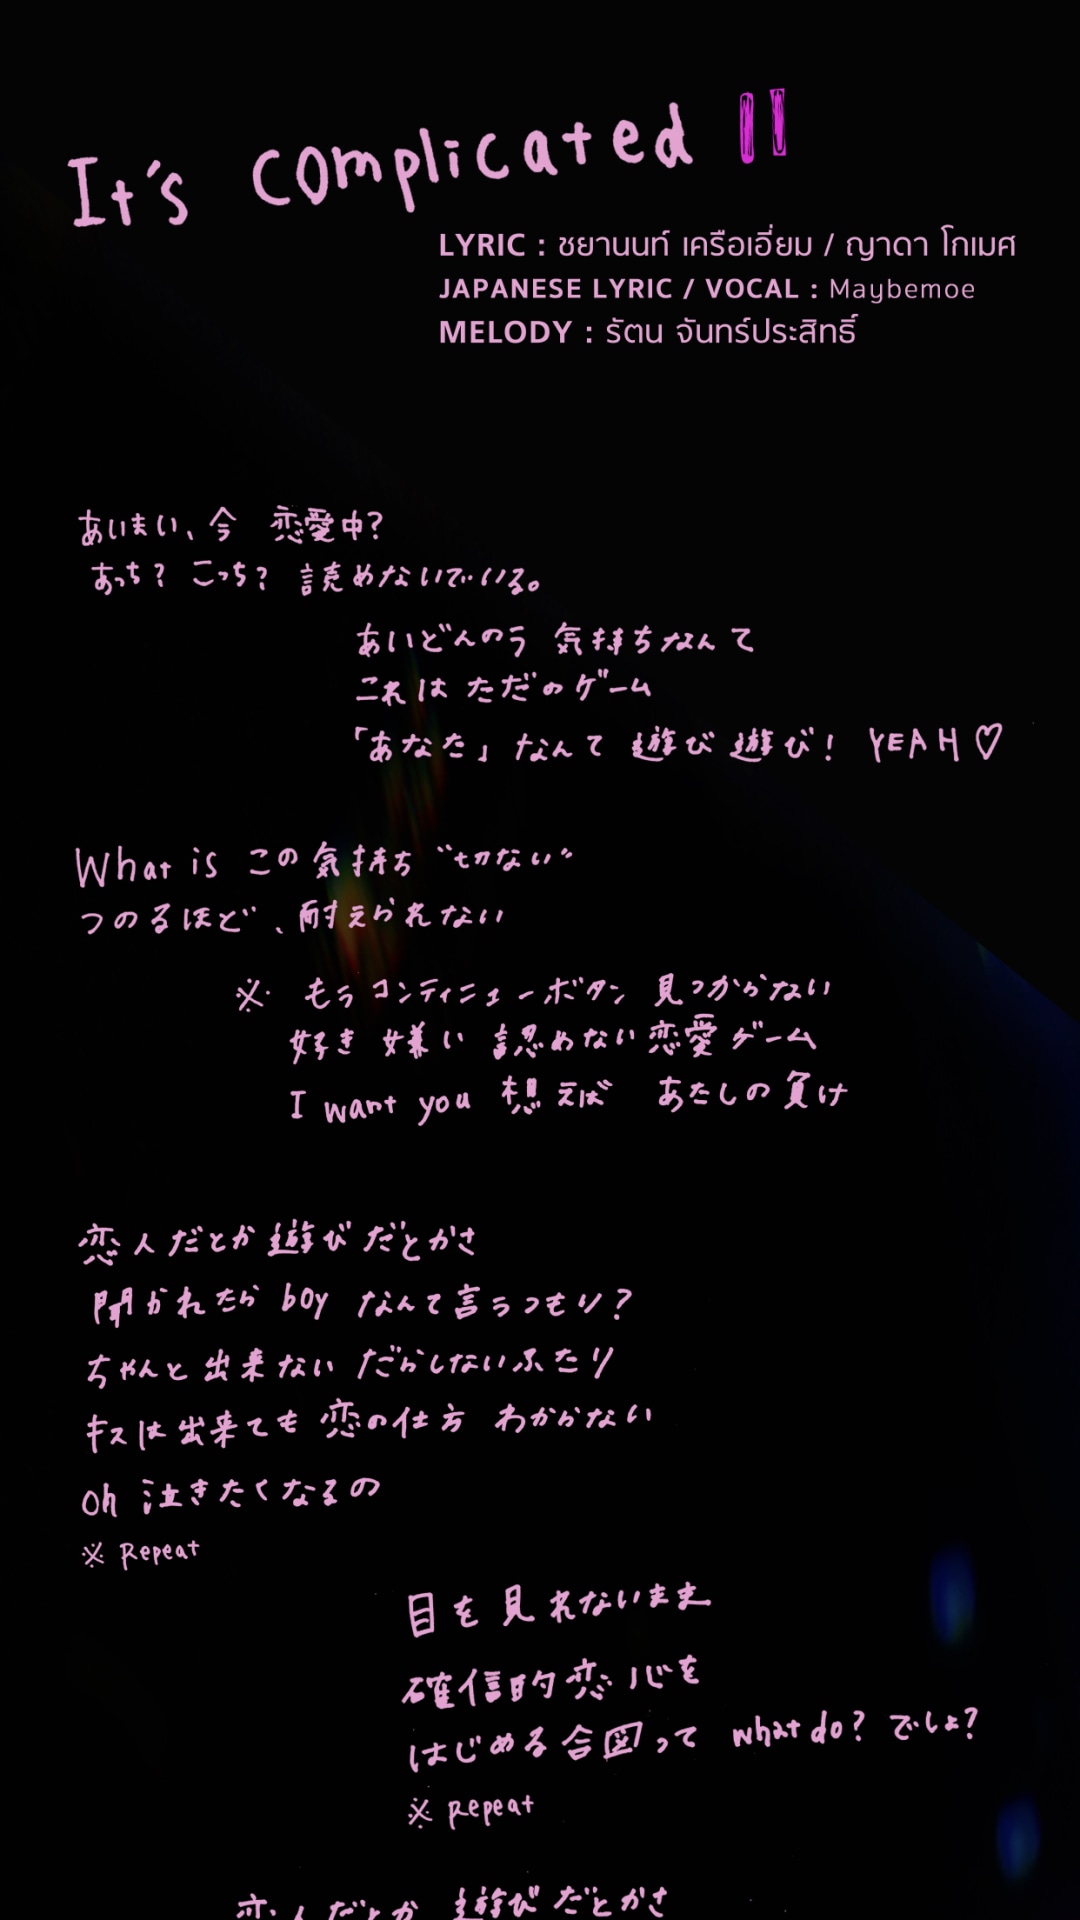 It's complicated
LYRIC : ชยานนท์ เครือเอี่ยม / ญาดา โกเมศ
JAPANESE LYRIC / VOCAL : Maybemoe
MELODY : รัตน จันทร์ประสิทธิ์
あいまい、今 恋愛中?
あっち? こっち? 読めないでいる。
あいどんのう 気持ちなんて
これは ただのゲーム
「あなた」なんて 遊び 遊び! YEAH♡
What is この気持ち “切ない”
つのるほど、耐えられない
※ もうコンティニューボタン 見つからない
好き 嫌い 認めない 恋愛ゲーム
I want you 想えば あたしの負け
恋人だとか 遊びだとかさ
聞かれたら boy なんて言うつもり?
ちゃんと出来ない だらしないふたり
キスは出来ても 恋の仕方 わからない
oh 泣きたくなるの
※ Repeat
目を見れないまま
確信的恋心を
はじめる合図って what do? でしょ?
※ Repeat
恋人だとか 遊びだとかさ